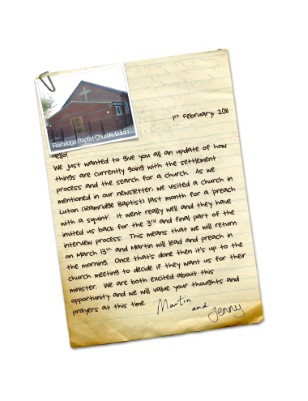 Ramridge Baptist Church, Luton
1st February 2011
Hello!
We just wanted to give you all an update of how
things are currently going with the settlement
process and the search for a church. As we
mentioned in our newsletter we visited a church in
Luton (Ramridge Baptist) last month for a 'preach
with a squint'. It went really well and they have
invited us back for the 3rd and final part of the
interview process. This means that we will return
on March 13th and Martin will lead and preach in
the morning. Once that's done then it's up to the
church meeting to decide if they want us for their
minister. We are both excited about this
opportunity and we will value your thoughts and
prayers at this time.
Martin
and
Jenny